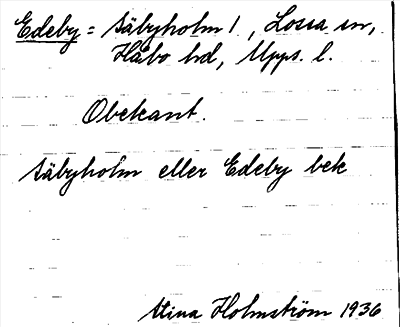 Edeby = Säbyholm 1, Lossa sn,
Håbo hd, Upps. l.
Obekant.
Säbyholm eller Edeby bek
Stina Holmström 1936